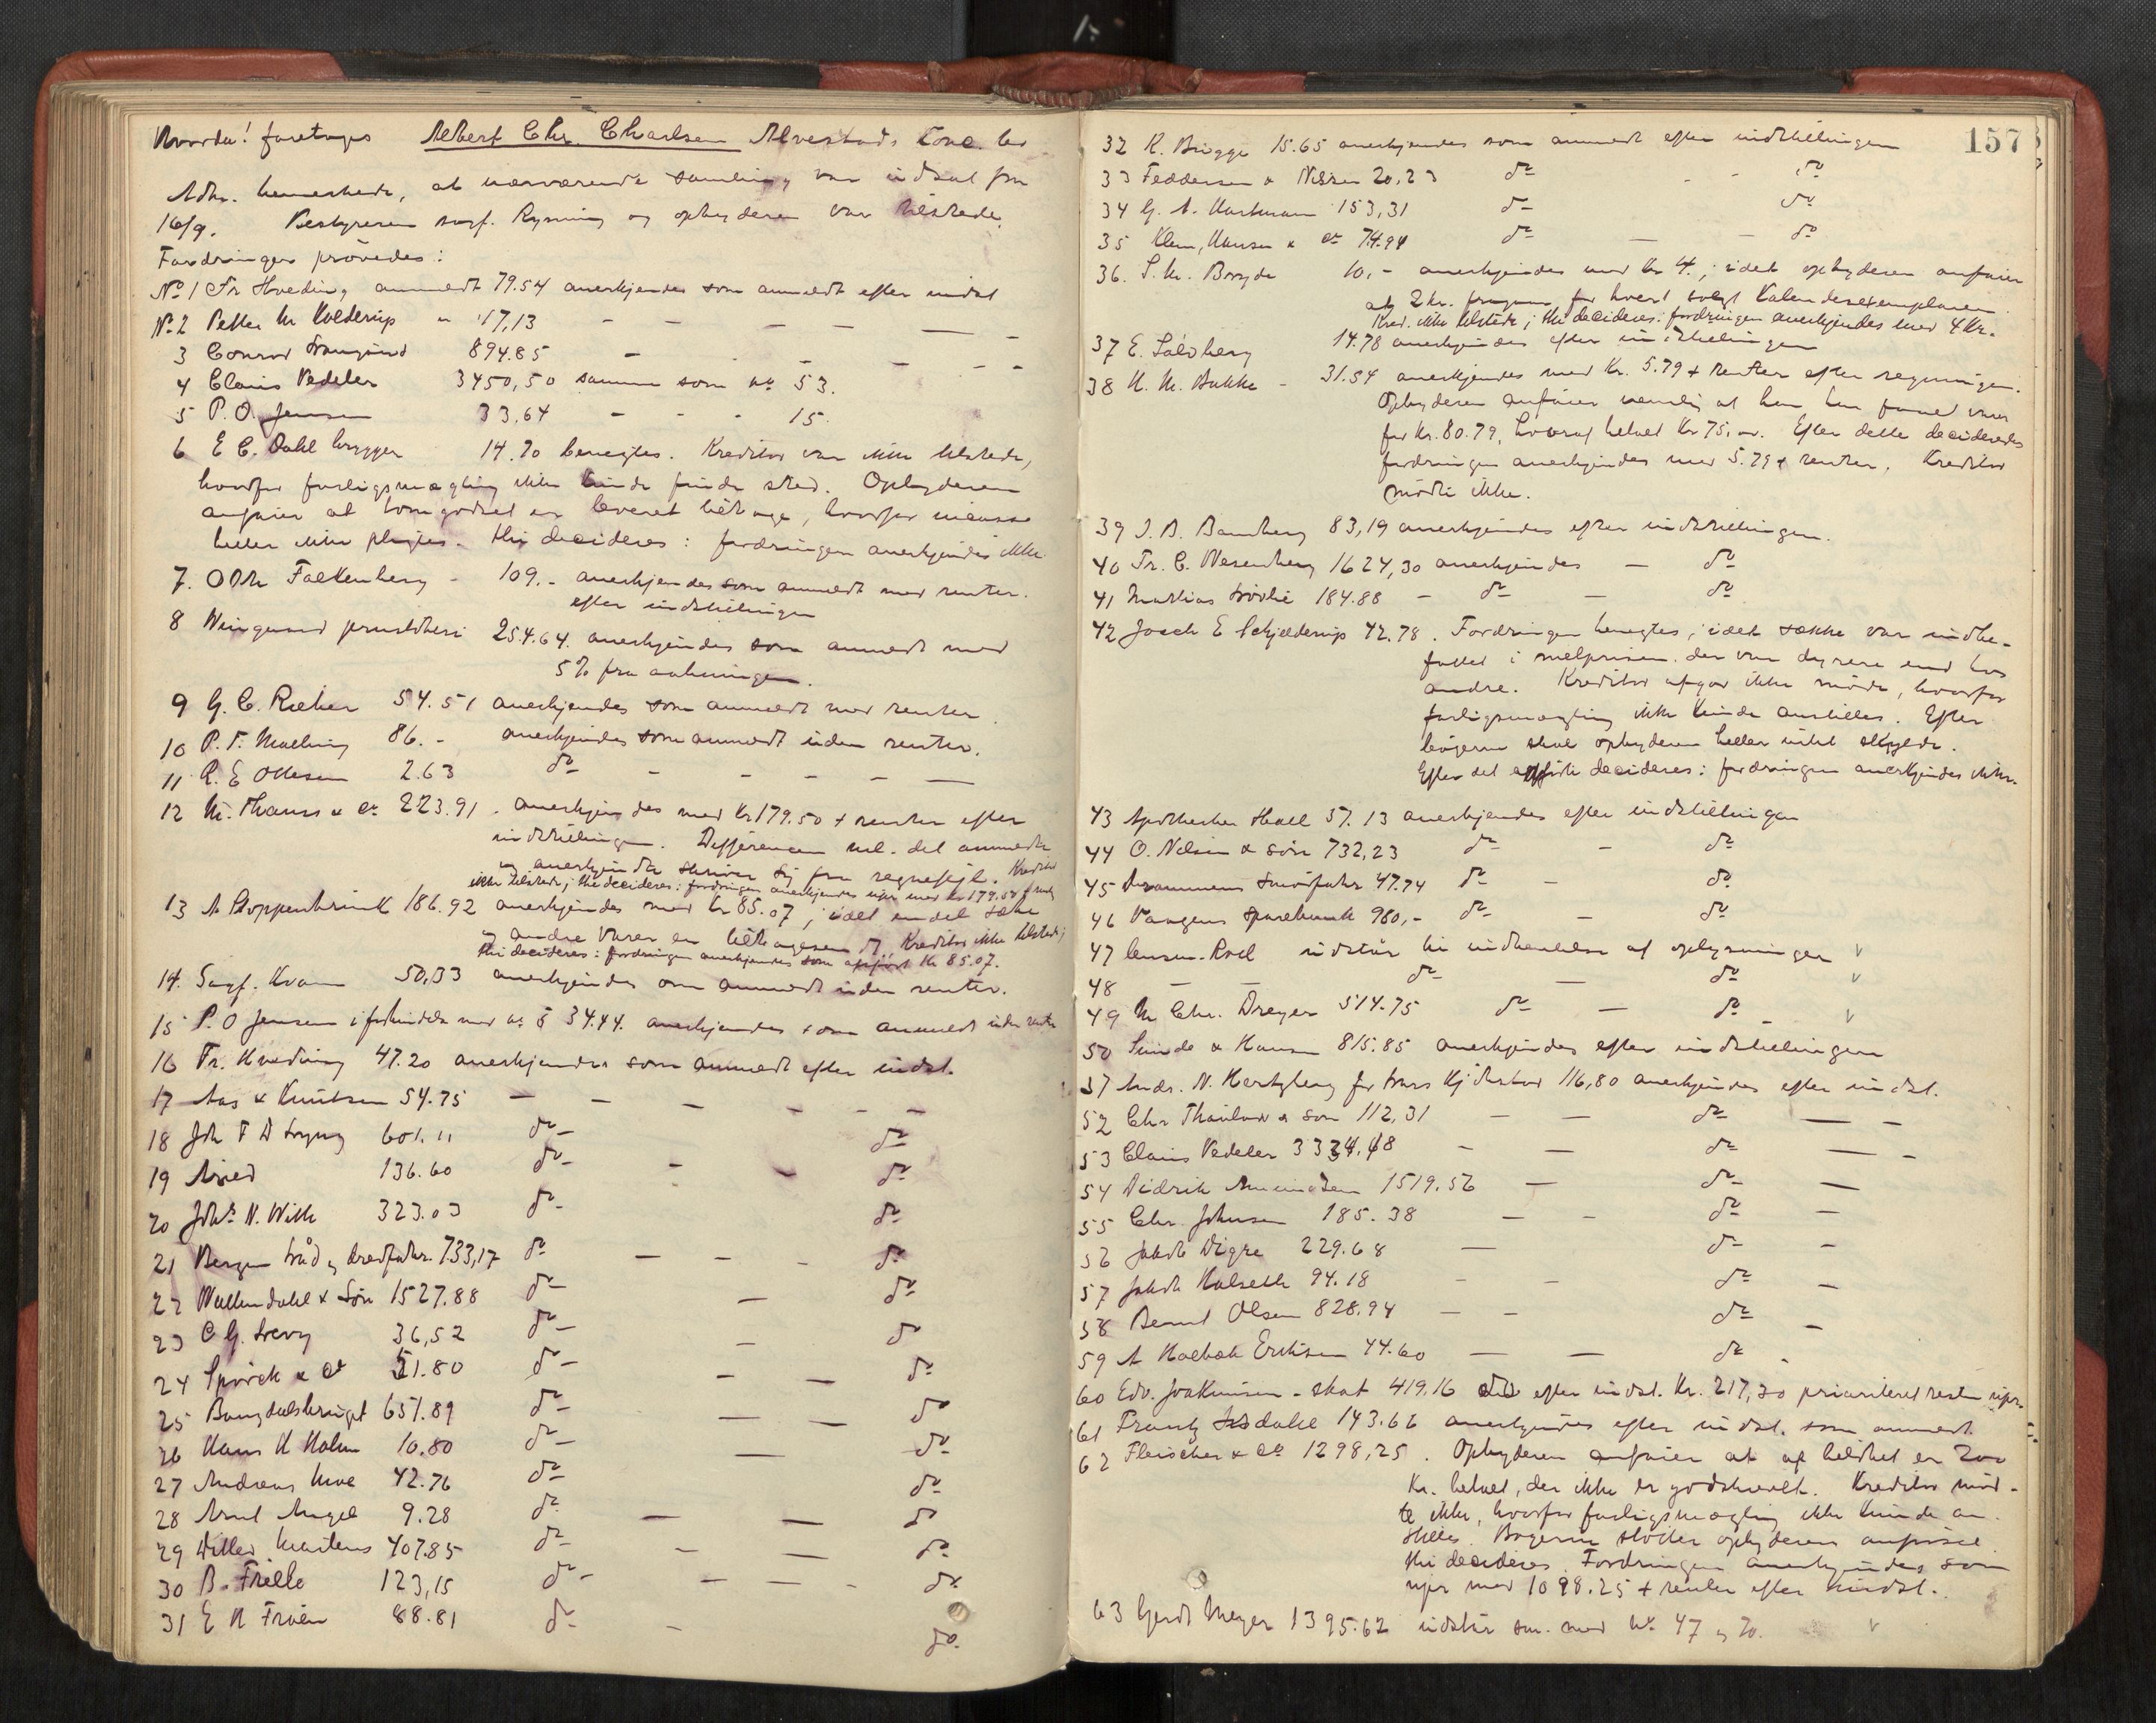 Hvorda! foretages Albert Chr. Charlsen Alvestads Conc. bo
Adm. bemerkede, at nærværende samling var indsat fra
16/9. Bestyreren sagf. Rynning og opbyderen var tilstede.
Fordringer prövedes:
No 1 Fr Hveding anmeldt 79.54 anerkjendes som anmeldt efter indst
No 2 Petter M Kolderup " 47,13 — — — — —
3 Conrad 894.85 — — — — —
4 Claus Vedeler 3450,50 samme som No 53.
5 P. O. Jensen 33,64 - - - 15.
6 E C. Dahl brygger 14.70 benegtes. Kreditor var ikke tilstede,
hvorfor forligsmægling ikke kunde finde sted. Opbyderen
anfører at tomgodset er leveret tilbage, hvorfor
heller ikke pligtes. Thi decideres: fordringen anerkjendes ikke
7. Falkenberg - 109.- anerkjendes som anmeldt med renter.
efter indstillingen
8 254.64. anerkjendes som anmeldt med
5% fra aabningen.
9 G. C. Rieber 54.51 anerkjendes som anmeldt med renter.
10 P. T. Moelling 86.- anerkjendes som anmeldt uden renter.
11 R. E Ottesen 2.63 do - - - - —
12 M. Thams & Co 223.91. anerkjendes med Kr 179.50 + renter efter
indstillingen. Differencen mel. det anmeldte
og anerkjendte skriver sig fra regnefejl. Kreditor
ikke tilstede; thi decideres: fordringen anerkjendes upr med Kr 179.50 + renter
13 A Stoppenbrink 186.92 anerkjendes med Kr 85.07, idet endel
og andre varer er Kreditor ikke tilstede;
thi decideres: fordringen anerkjendes som anfört Kr 85.07.
14. Sagf. Kvam 50,33 anerkjendes som anmeldt uden renter.
15 P. O Jensen i forbindelse med No 5 34.44. anerkjendes som anmeldt uden renter
16 Fr. Hveding 47.20 anerkjendes som anmeldt efter indst.
17 Aas & Knutsen 54.75 — — — — — —
18 Joh F D 601.11 do — do
19 136.60 do - - - do
20 Johs N. With 323.03 do - do
21 Bergen tråd og 733,17 do — - - do
22 Wallendahl & Sön 1527.88 do — — do
23 C G. 36,52 do — — do
24 Spörck & Co 51.80 do — - — do
25 657.89 do — — — do
26 Hans H Holm 10.80 do — — do
27 Andreas Moe 42.76 do do
28 Arnt Angel 9.28 do — — do
29 Martens 407.85 do - — do
30 B. Friele 123,15 do - — — - do
31 E A 88.81 do - - do
157
32 R. Brügge 15.65 anerkjendes som anmeldt efter indstillingen
33 Feddersen & Nissen 20,23 do - - do
34 G. A. Hartmann 153,31 do do
35 Klem, Hansen & Co 74.94 do — — do
36. 10,- anerkjendes med Kr 4.; idet opbyderen anfører
at 2 kr. for hvert solgt Kalenderexemplarer.
Kred. ikke tilstede; thi decideres: fordringen anerkjendes med 4 Kr.
37 E. Salvberg 14.78 anerkjendes efter indstillingen
38 Bakke - 31.54 anerkjendes med Kr. 5.79 + renter efter regningen.
Opbyderen anfører nemlig at han har faaet varer
for Kr. 80.79, hvoraf betalt Kr 75,—. Efter dette decideredes
fordringen anerkjendes med 5.79 + renter. Kreditor
mödte ikke.
39 83,19 anerkjendes efter indstillingen.
40 Fr. C. Wesenberg 1624,30 anerkjendes — do
41 Mathias 184.88 - do — do
42 E Schjelderup 42.78. Fordringen benegtes, idet sække var indbe-
fattet i melprisen, der var dyrere end hos
andre. Kreditor afgav ikke möde, hvorfor
forligsmægling ikke kunde anstilles. Efter
bögerne skal opbyderen heller intet skylde.
Efter det anförte decideres: fordringen anerkjendes ikke.
43 Apotheker Hall 57.13 anerkjendes efter indstillingen
44 O. Nilsen & sön 732,23 do — do
45 Drammens 47.74 do — do
46 Vaagens Sparebank 980,- do — do
47 udstår til indhentelse af oplysninger v
48 — — do — do v
49 M Chr. Dreyer 514.75 do — do - v
50 Sunde & Hansen 815.85 anerkjendes efter indstillingen
51 Andr. N. Hertzberg for 116,80 anerkjendes efter indst.
52 Chr Thaulow & sön 112,31 — — do — -
53 Claus Vedeler 3334.48 - — do — -
54 Didrik 1519.56 — do — —
55 Chr. Johnsen 185.38 — - do —
56 Jakob Digre 229.68 — do - -
57 Jakob Halseth 94.18 - - do —
58 Bernt Olsen 828.94 — - do -
59 A Holbæk Eriksen 44.60 — — do -
60 Edv. Joakimsen - skat 419.16 efter indst. Kr. 217,30 prioriteret resten upr.
61 Frantz 143.66 anerkjendes efter indst. som anmeldt
62 Fleischer & Co 1298,25. Opbyderen anfører at af belöbet er 200
Kr. betalt, der ikke er godskrevet. Kreditor möd-
te ikke, hvorfor forligsmægling ikke kunde an-
stilles. Bögerne stötter opbyderens anförsel.
thi decideres. Fordringen anerkjendes som
upr med 1098.25 + renter efter indst.
63 Gerdt Meyer 1395.62 udstår sm. med No 47 og 70. v